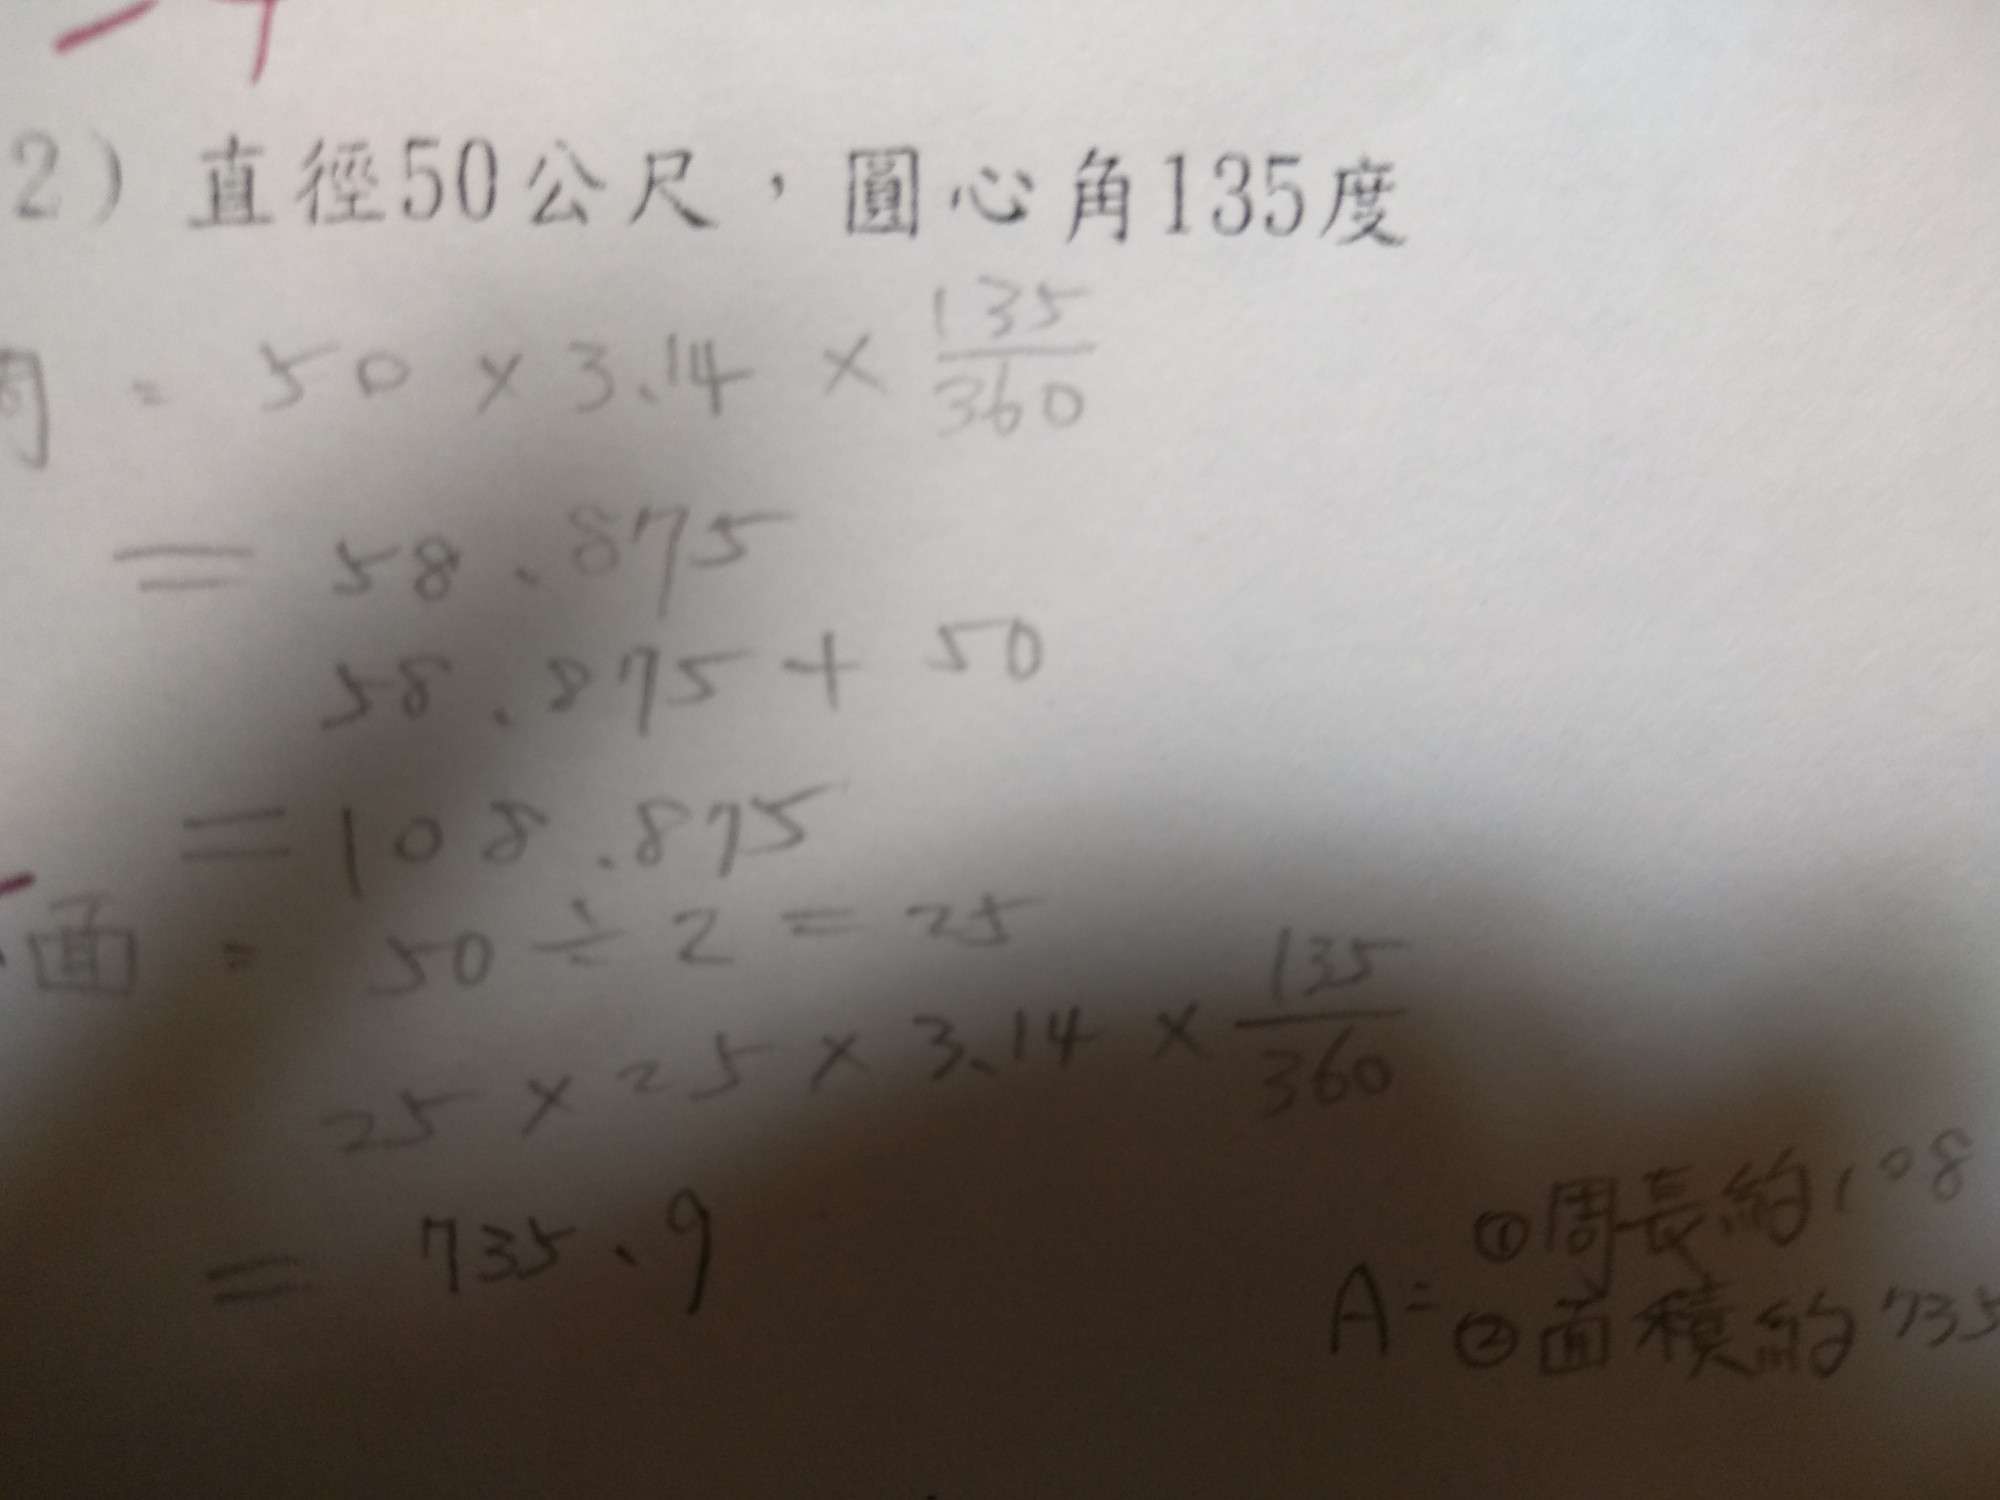 2) 直徑50公尺，圓心角135度
周 = 50 × 3.14 × 135/360
= 58.875
58.875 + 50
= 108.875
面 = 50 ÷ 2 = 25
25 × 25 × 3.14 × 135/360
= 735.9
A= ①周長約108
②面積約735